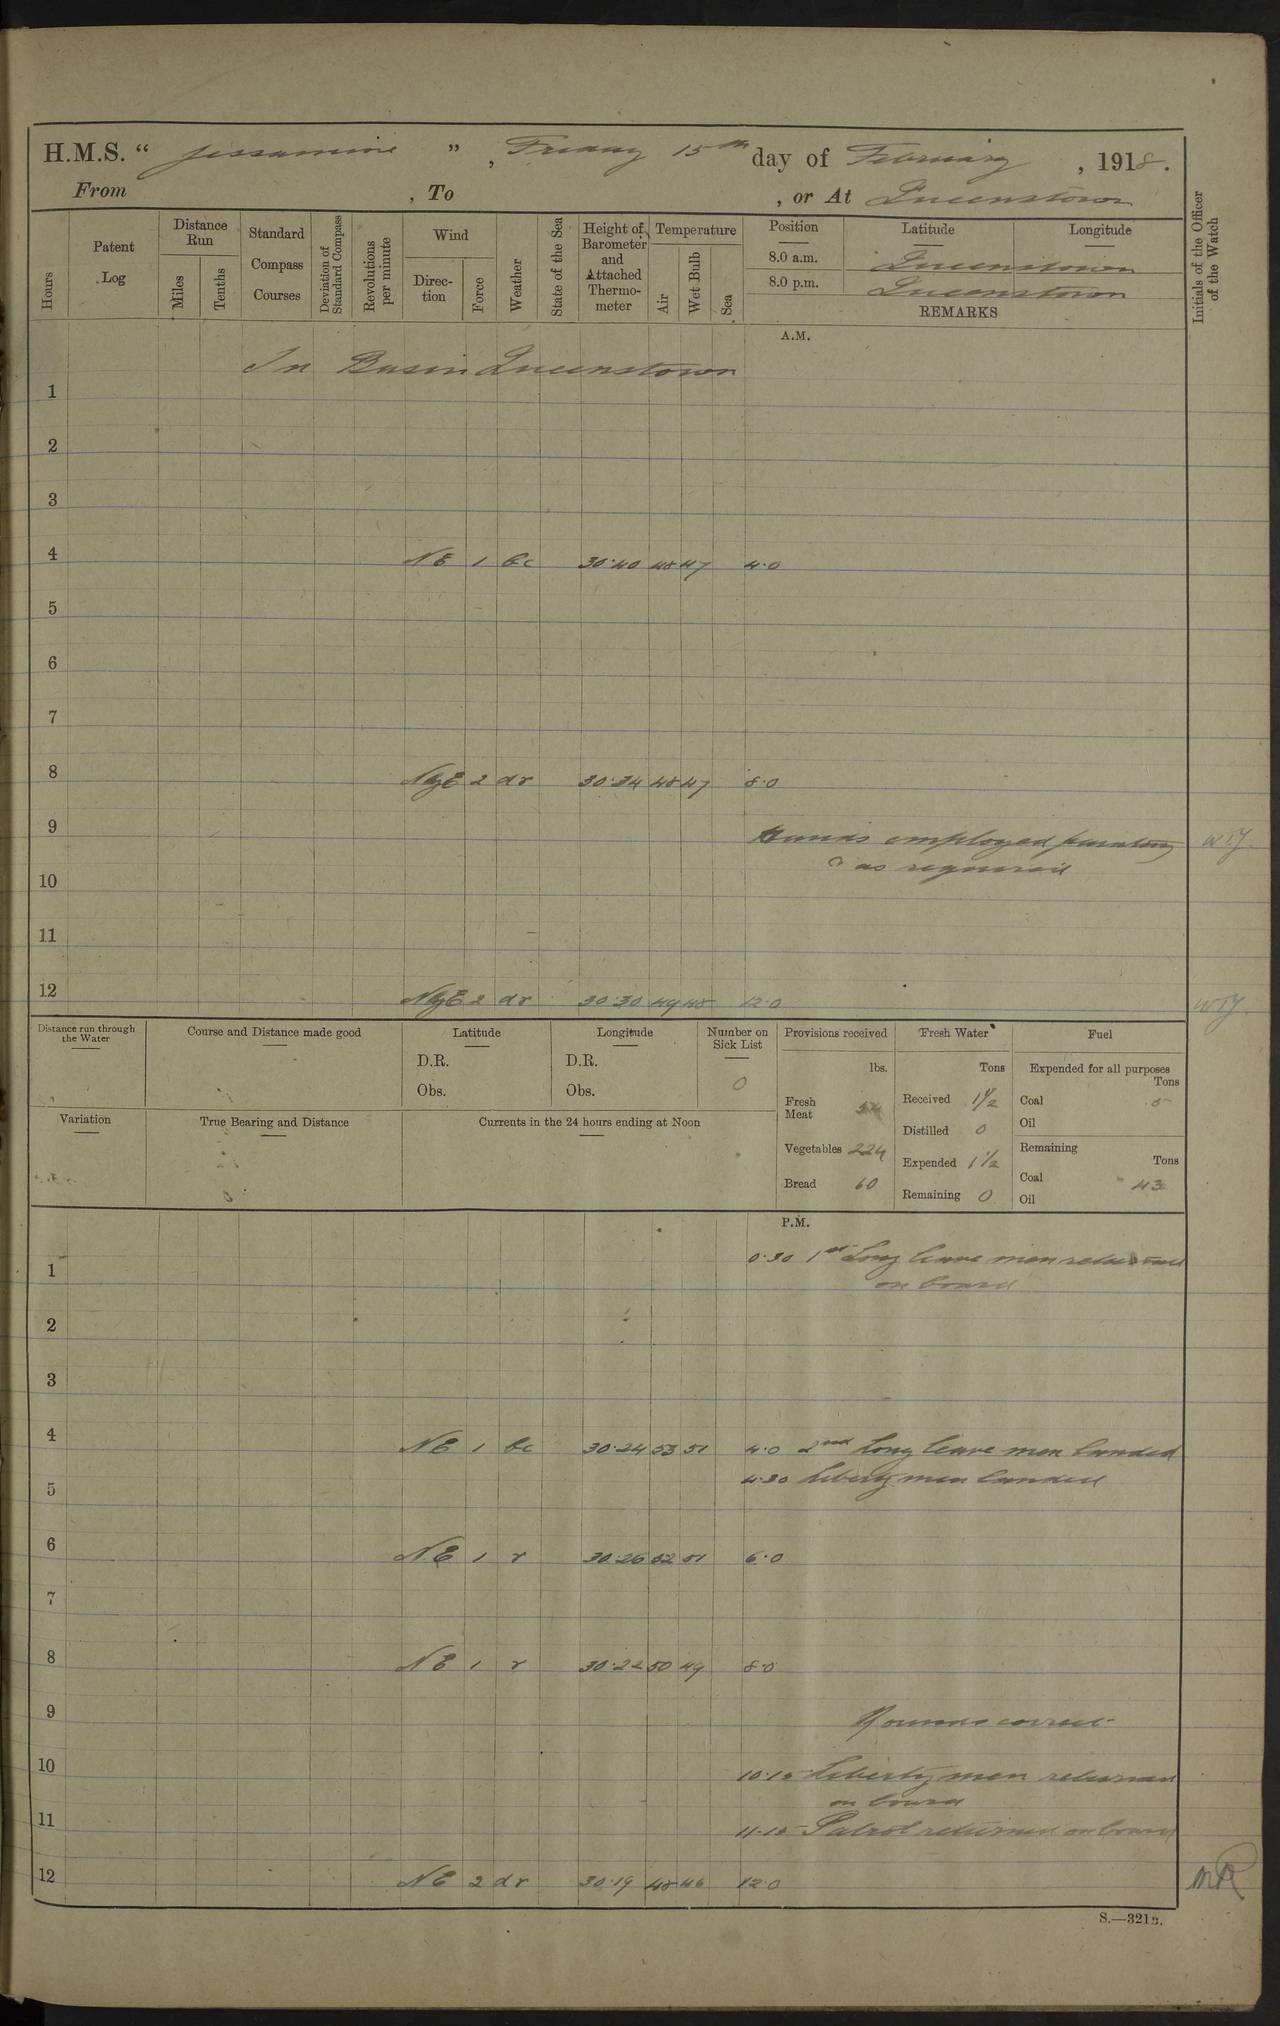 H.M.S. “ Jessamine ” , Friday 15th day of February , 1918.
From , To , or At Queenstown
Hours
Patent Log
Distance Run
Miles
Tenths
Standard Compass Courses
Deviation of Standard Compass
Revolutions per minute
Wind
Direction
Force
Weather
State of the Sea
Height of Barometer and Attached Thermometer
Temperature
Air
Wet Bulb
Sea
Position Latitude Longitude
8.0 a.m. Queenstown
8.0 p.m. Queenstown
REMARKS
Initials of the Officer of the Watch
A.M.
In Basin Queenstown
1
2
3
4 NE 1 bc 30.40 48 47 4.0
5
6
7
8 NbyE 2 dr 30.34 48 47 8.0
9 Hands employed painting
& as required
10
11
12 NbyE 2 dr 30.30 49 48 12.0
Distance run through the Water
Course and Distance made good
Latitude
D.R.
Obs.
Longitude
D.R.
Obs.
Number on Sick List
0
Variation
True Bearing and Distance
0
Currents in the 24 hours ending at Noon
Provisions received
lbs.
Fresh Meat
Vegetables 224
Bread 60
Fresh Water
Tons
Received 1½
Distilled 0
Expended 1½
Remaining 0
Fuel
Expended for all purposes
Tons
Coal 5
Oil
Remaining
Tons
Coal 43
Oil
P.M.
0.30 1st Long leave men returned
on board
1
2
3
4 NE 1 bc 30.24 53 51 4.0 2nd Long leave men landed
4.30 Liberty men landed
5
6 NE 1 r 30.26 52 51 6.0
7
8 NE 1 r 30.22 50 49 8.0
9 Rounds correct
10 10.15 Liberty men returned
on board
11 11.15 Patrol returned on board
12 NE 2 dr 30.19 48 46 12.0
S.—321B.